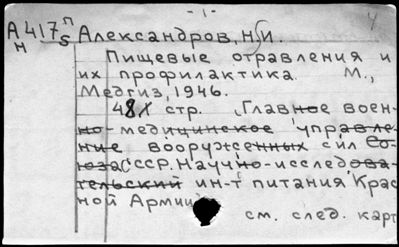 - 1 - 4
А 417 п Александров, Н И.
н s
Пищевые отравления и
их профилактика. М.,
Медгиз, 1946.
48 стр. (Главное воен-
но-медицинское управле-
ние вооруженных сил Со-
юза ССР. Научно-исследова-
тельский ин-т питания Крас
ной Армии
см. след. карт